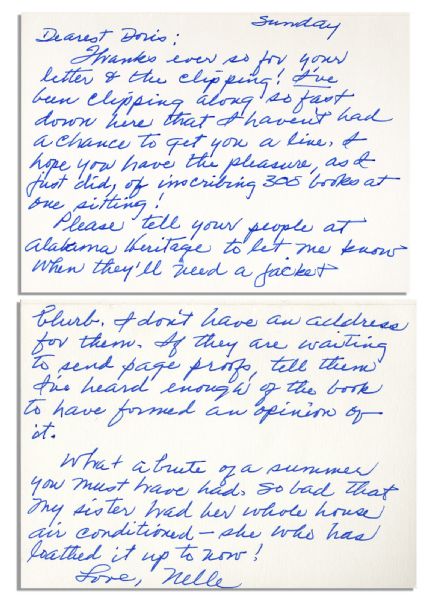 Sunday
Dearest Doris:
Thanks ever so for your
letter & the clipping! I've
been clipping along so fast
down here that I haven't had
a chance to get you a line. I
hope you have the pleasure, as I
just did, of inscribing 300 books at
one sitting!
Please tell your people at
Alabama Heritage to let me know
when they'll need a jacket
blurb. I don't have an address
for them. If they are waiting
to send page proofs, tell them
I've heard enough of the book
to have formed an opinion of
it.
What a brute of a summer
you must have had. So bad that
my sister had her whole house
air conditioned — she who has
loathed it up to now!
Love, Nelle